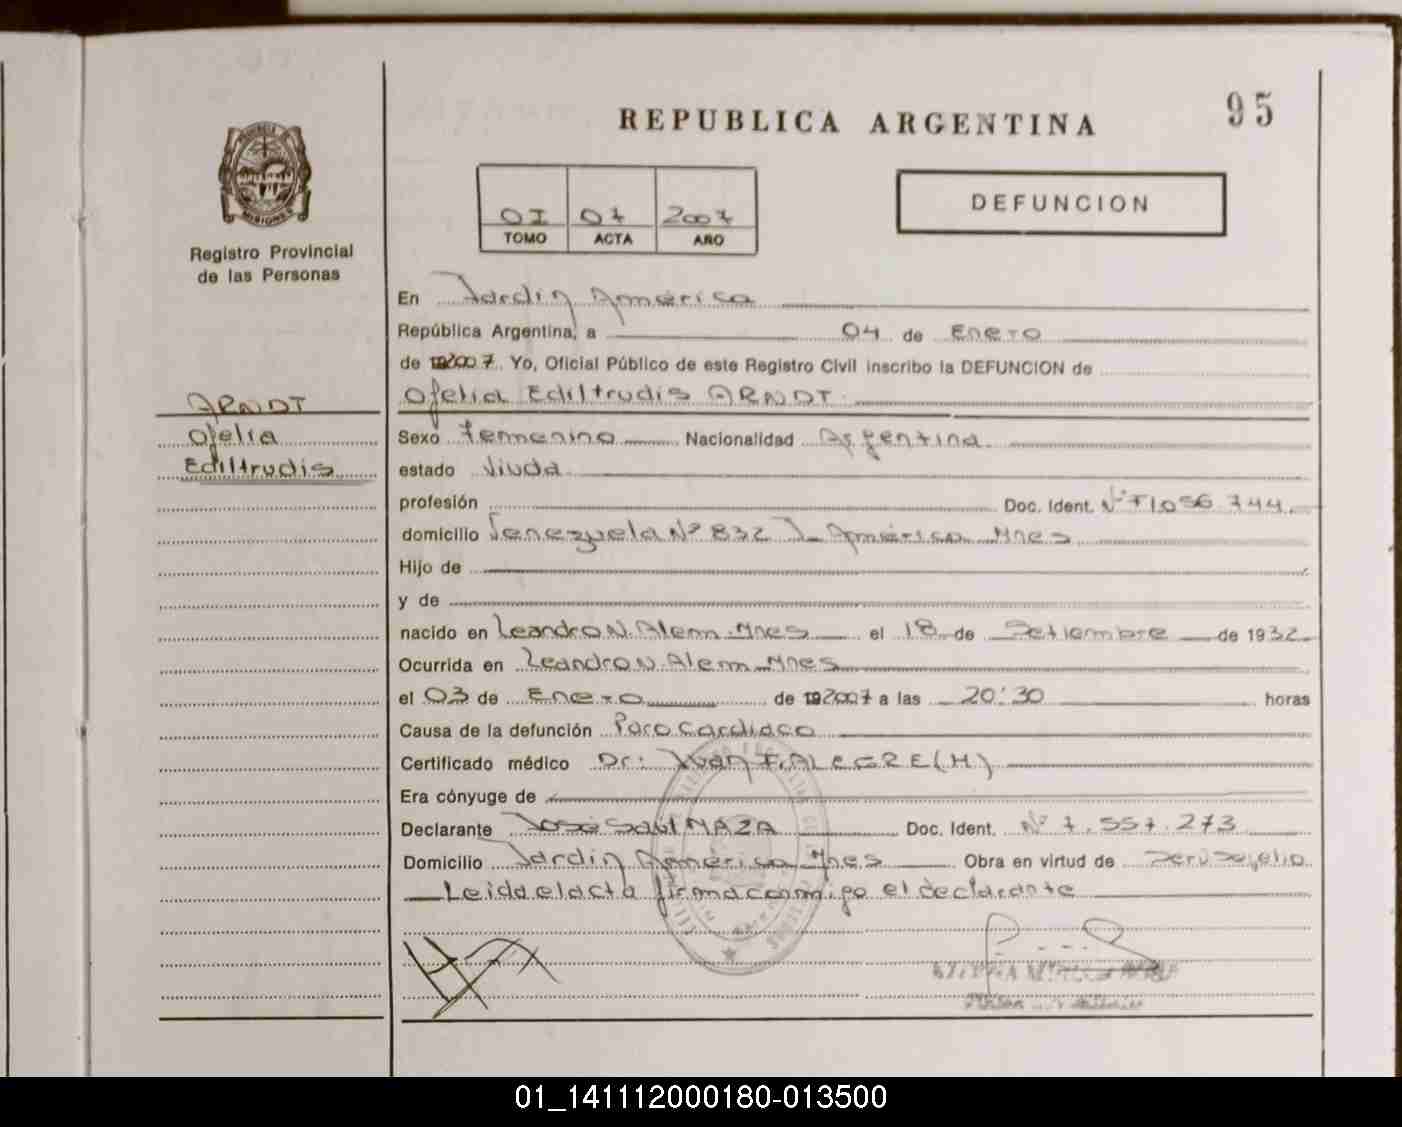 95
REPUBLICA ARGENTINA
DEFUNCION
OI 07 2007
TOMO ACTA AÑO
MISIONES
Registro Provincial
de las Personas
ARNDT
Ofelia
Ediltrudis
En Jardin America
República Argentina, a 04 de Enero
de 2007. Yo, Oficial Público de este Registro Civil inscribo la DEFUNCION de
Ofelia Ediltrudis ARNDT.
Sexo Femenino Nacionalidad Argentina.
estado Viuda
profesión Doc. Ident. Nº F1.056.744.
domicilio Venezuela Nº 832 J. América Mnes
Hijo de
y de
nacido en Leandro N. Alem. Mnes el 18 de Setiembre de 1932
Ocurrida en Leandro N. Alem Mnes
el 03 de Enero de 2007 a las 20:30 horas
Causa de la defunción Paro Cardiaco
Certificado médico Dr: Juan F. ALEGRE (M)
Era cónyuge de
Declarante José Saul MAZA Doc. Ident. Nº 7.557.273
Domicilio Jardin América Mnes Obra en virtud de Serv. Sepelio
Leida el acta firma conmigo el declarante
01_141112000180-013500